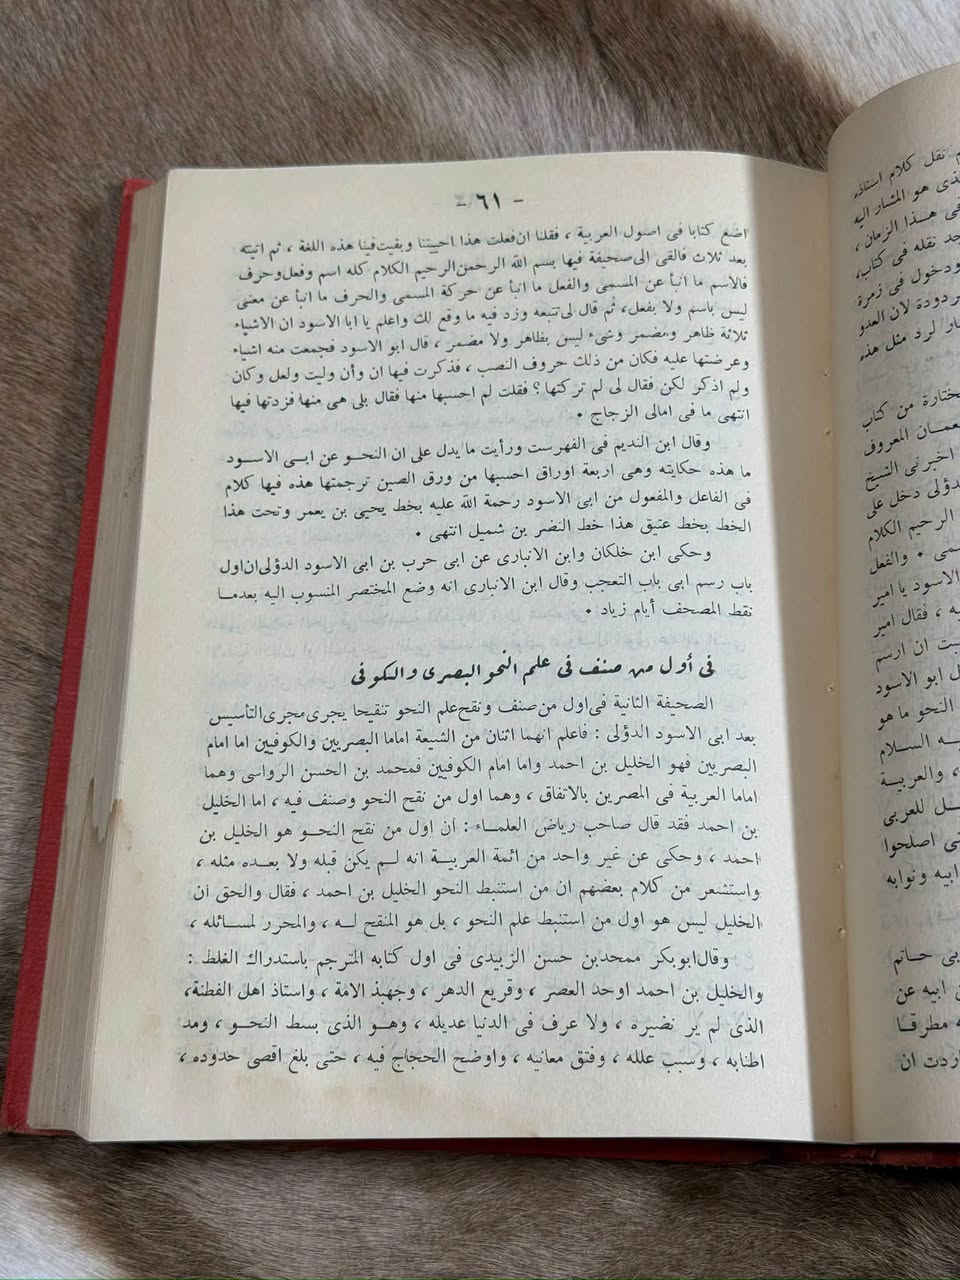 - ٦١ -
اضع كتابا فى اصول العربية ، فقلنا ان فعلت هذا احييتنا وبقيت فينا هذه اللغة ، ثم اتيته
بعد ثلاث فالقى الى صحيفة فيها بسم الله الرحمن الرحيم الكلام كله اسم وفعل وحرف
فالاسم ما انبأ عن المسمى والفعل ما انبأ عن حركة المسمى والحرف ما انبأ عن معنى
ليس باسم ولا بفعل، ثم قال لى تتبعه وزد فيه ما وقع لك واعلم يا ابا الاسود ان الاشياء
ثلاثة ظاهر ومضمر وشىء ليس بظاهر ولا مضمر ، قال ابو الاسود فجمعت منه اشياء
وعرضتها عليه فكان من ذلك حروف النصب ، فذكرت فيها ان وأن وليت ولعل وكان
ولم اذكر لكن فقال لى لم تركتها ؟ فقلت لم احسبها منها فقال بلى هى منها فزدتها فيها
انتهى ما فى امالى الزجاج •
وقال ابن النديم فى الفهرست ورأيت ما يدل على ان النحو عن ابى الاسود
ما هذه حكايته وهى اربعة اوراق احسبها من ورق الصين ترجمتها هذه فيها كلام
فى الفاعل والمفعول من ابى الاسود رحمة الله عليه بخط يحيى بن يعمر وتحت هذا
الخط بخط عتيق هذا خط النضر بن شميل انتهى •
وحكى ابن خلكان وابن الانبارى عن ابى حرب بن ابى الاسود الدؤلى ان اول
باب رسم ابى باب التعجب وقال ابن الانبارى انه وضع المختصر المنسوب اليه بعدما
نقط المصحف أيام زياد •
فى أول من صنف فى علم النحو البصرى والكوفى
الصحيفة الثانية فى اول من صنف ونقح علم النحو تنقيحا يجرى مجرى التأسيس
بعد ابى الاسود الدؤلى : فاعلم انهما اثنان من الشيعة اماما البصريين والكوفيين اما امام
البصريين فهو الخليل بن احمد واما امام الكوفيين فمحمد بن الحسن الرواسى وهما
اماما العربية فى المصرين بالاتفاق ، وهما اول من نقح النحو وصنف فيه ، اما الخليل
بن احمد فقد قال صاحب رياض العلماء : ان اول من نقح النحو هو الخليل بن
احمد ، وحكى عن غير واحد من ائمة العربية انه لم يكن قبله ولا بعده مثله ،
واستشعر من كلام بعضهم ان من استنبط النحو الخليل بن احمد ، فقال والحق ان
الخليل ليس هو اول من استنبط علم النحو ، بل هو المنقح له ، والمحرر لمسائله ،
وقال ابو بكر ممحد بن حسن الزبيدى فى اول كتابه المترجم باستدراك الغلط :
والخليل بن احمد اوحد العصر ، وقريع الدهر ، وجهبذ الامة ، واستاذ اهل الفطنة،
الذى لم ير نضيره ، ولا عرف فى الدنيا عديله ، وهو الذى بسط النحو ، ومد
اطنابه ، وسبب علله ، وفتق معانيه ، واوضح الحجاج فيه ، حتى بلغ اقصى حدوده ،
نقل كلام استاذه
هو المشار اليه
هذا الزمان ،
نقله فى كتاب،
ودخول فى زمرة
لان العدو
لرد مثل هذه
من كتاب
المعروف
اخبرنى الشيخ
دخل على
الرحيم الكلام
• والفعل
الاسود يا امير
، فقال امير
ان ارسم
ابو الاسود
النحو ما هو
السلام
، والعربية
للعربى
اصلحوا
ابيه ونوابه
حاتم
ابيه عن
مطرقا
ان